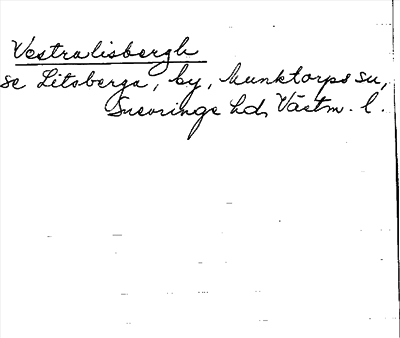 Vestralisbergh
se Litsberga, by, Munktorps su,
Snevringe hd, Västm. l.